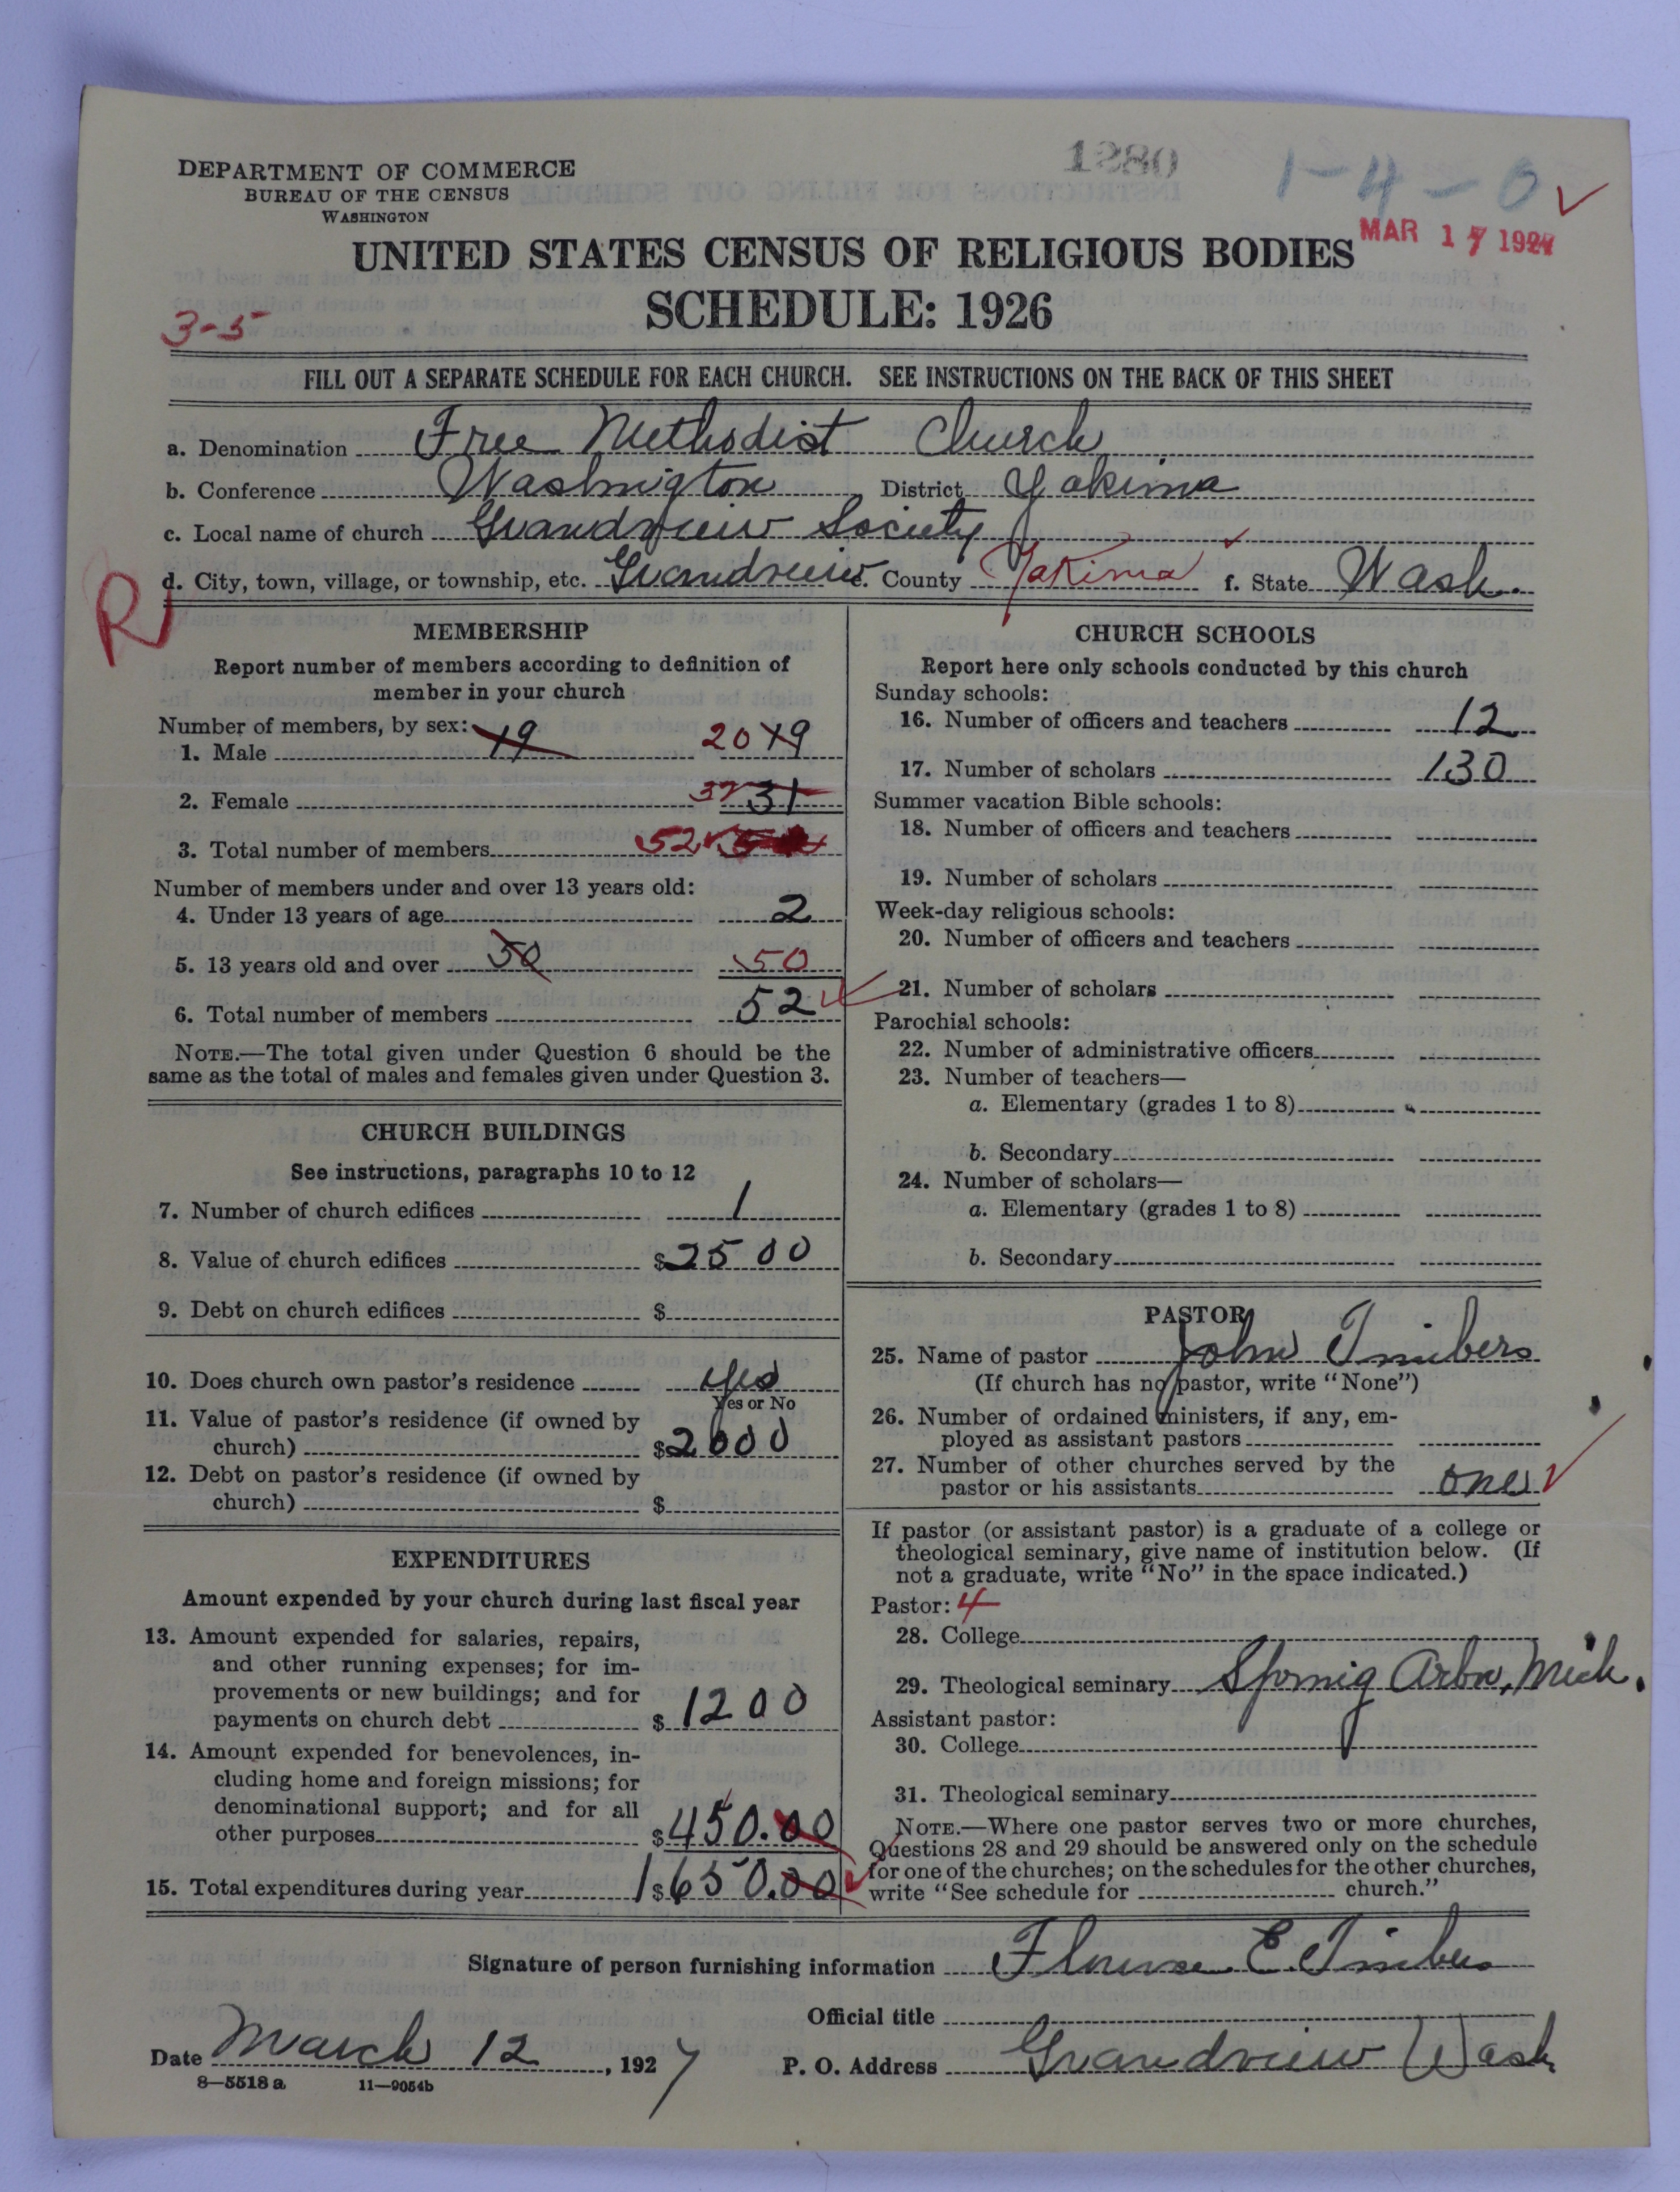 1280
1-4-0
DEPARTMENT OF COMMERCE
BUREAU OF THE CENSUS
WASHINGTON
MAR 17 1927
UNITED STATES CENSUS OF RELIGIOUS BODIES
SCHEDULE: 1926
3-5
FILL OUT A SEPARATE SCHEDULE FOR EACH CHURCH. SEE INSTRUCTIONS ON THE BACK OF THIS SHEET
a. Denomination Free Methodist Church
b. Conference Washington District Yakima
c. Local name of church Grandview Society
d. City, town, village, or township, etc. Grandview e. County Yakima f. State Wash.
R
MEMBERSHIP
Report number of members according to definition of
member in your church
Number of members, by sex:
1. Male 19 20 19
2. Female 32 31
3. Total number of members 52
Number of members under and over 13 years old:
4. Under 13 years of age 2
5. 13 years old and over 50 50
6. Total number of members 52
NOTE.—The total given under Question 6 should be the
same as the total of males and females given under Question 3.
CHURCH BUILDINGS
See instructions, paragraphs 10 to 12
7. Number of church edifices 1
8. Value of church edifices $2500
9. Debt on church edifices $
10. Does church own pastor's residence yes
Yes or No
11. Value of pastor's residence (if owned by
church) $2000
12. Debt on pastor's residence (if owned by
church) $
EXPENDITURES
Amount expended by your church during last fiscal year
13. Amount expended for salaries, repairs,
and other running expenses; for im-
provements or new buildings; and for
payments on church debt $1200
14. Amount expended for benevolences, in-
cluding home and foreign missions; for
denominational support; and for all
other purposes $450.00
15. Total expenditures during year 1$650.00
CHURCH SCHOOLS
Report here only schools conducted by this church
Sunday schools:
16. Number of officers and teachers 12
17. Number of scholars 130
Summer vacation Bible schools:
18. Number of officers and teachers
19. Number of scholars
Week-day religious schools:
20. Number of officers and teachers
21. Number of scholars
Parochial schools:
22. Number of administrative officers
23. Number of teachers—
a. Elementary (grades 1 to 8)
b. Secondary
24. Number of scholars—
a. Elementary (grades 1 to 8)
b. Secondary
PASTOR
25. Name of pastor John Timbers
(If church has no pastor, write "None")
26. Number of ordained ministers, if any, em-
ployed as assistant pastors
27. Number of other churches served by the
pastor or his assistants one
If pastor (or assistant pastor) is a graduate of a college or
theological seminary, give name of institution below. (If
not a graduate, write "No" in the space indicated.)
Pastor: 4
28. College
29. Theological seminary Spring Arbor, Mich.
Assistant pastor:
30. College
31. Theological seminary
NOTE.—Where one pastor serves two or more churches,
Questions 28 and 29 should be answered only on the schedule
for one of the churches; on the schedules for the other churches,
write "See schedule for church."
Signature of person furnishing information E. Timbers
Official title
Date March 12, 1927 P. O. Address Grandview Wash.
8—5518 a 11—9054b